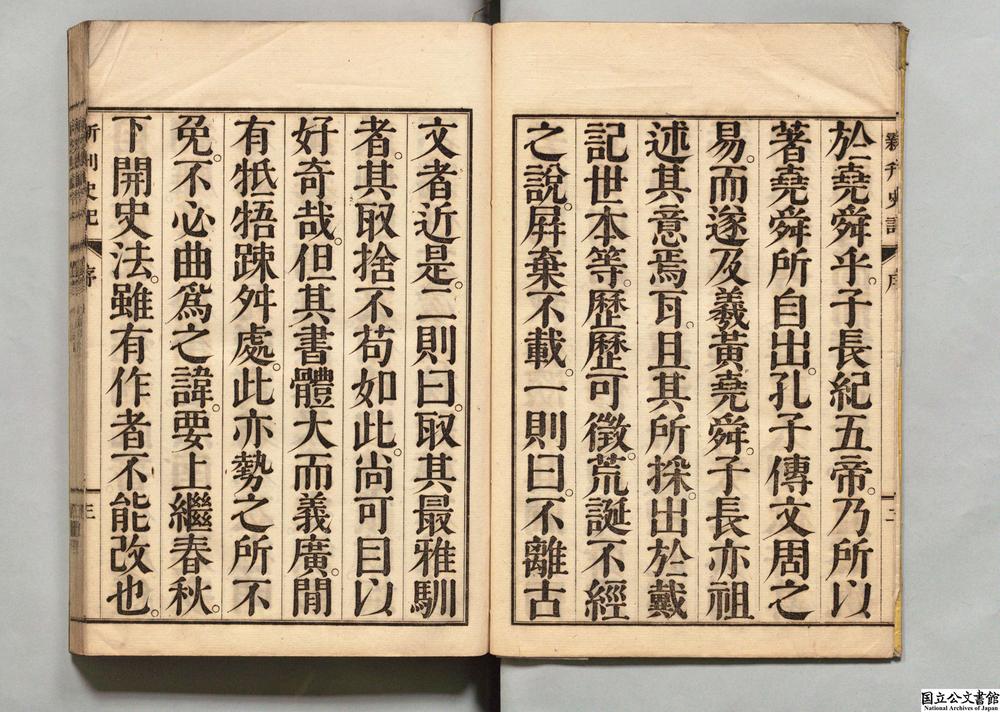 於堯舜乎。子長紀五帝。乃所以
著堯舜所自出。孔子傳文周之
易。而遂及羲黃堯舜。子長亦祖
述其意焉耳。且其所採。出於戴
記世本等。歷歷可徵。荒誕不經
之說。屏棄不載。一則曰。不離古
文者近是。二則曰。取其最雅馴
者。其取捨不苟如此。尚可目以
好奇哉。但其書體大而義廣。間
有牴牾踈舛處。此亦勢之所不
免。不必曲爲之諱。要上繼春秋。
下開史法。雖有作者不能改也。
新刊史記
序
二
新刊史記
序
三
国立公文書館
National Archives of Japan